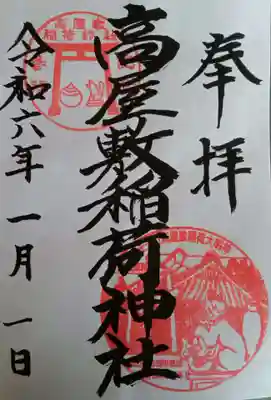 奉拝
高屋敷稲荷神社
令和六年 一月 一日